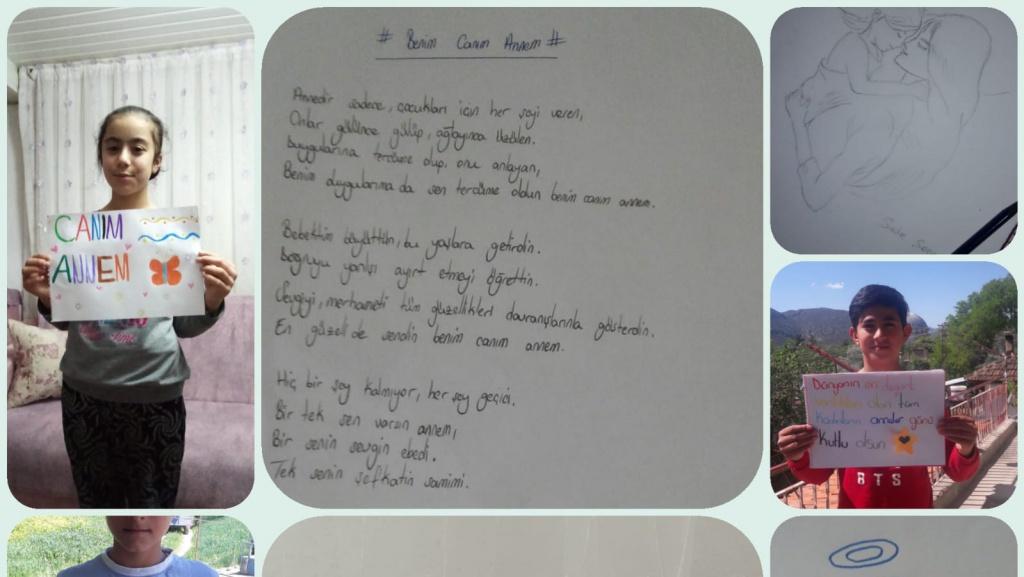 CANIM
ANNEM
# Benim Canım Annem #
Annedir sadece, çocukları için her şeyi veren,
Onlar gülünce gülüp, ağlayınca üzülen.
Duygularına tercüme olup, onu anlayan,
Benim duygularıma da sen tercüme oldun benim canım annem.
Bebettim büyüttün, bu yaşlara getirdin.
Doğruyu yanlışı ayırt etmeyi öğrettin.
Sevgiyi, merhameti tüm güzellikleri davranışlarınla gösterdin.
En güzeli de sendin benim canım annem.
Hiç bir şey kalmıyor, her şey geçici.
Bir tek sen varsın annem,
Bir senin sevgin ebedi.
Tek senin şefkatin samimi.
Dünyanın en
varlıkları olan tüm
Kadınların anneler günü
Kutlu olsun
BTS